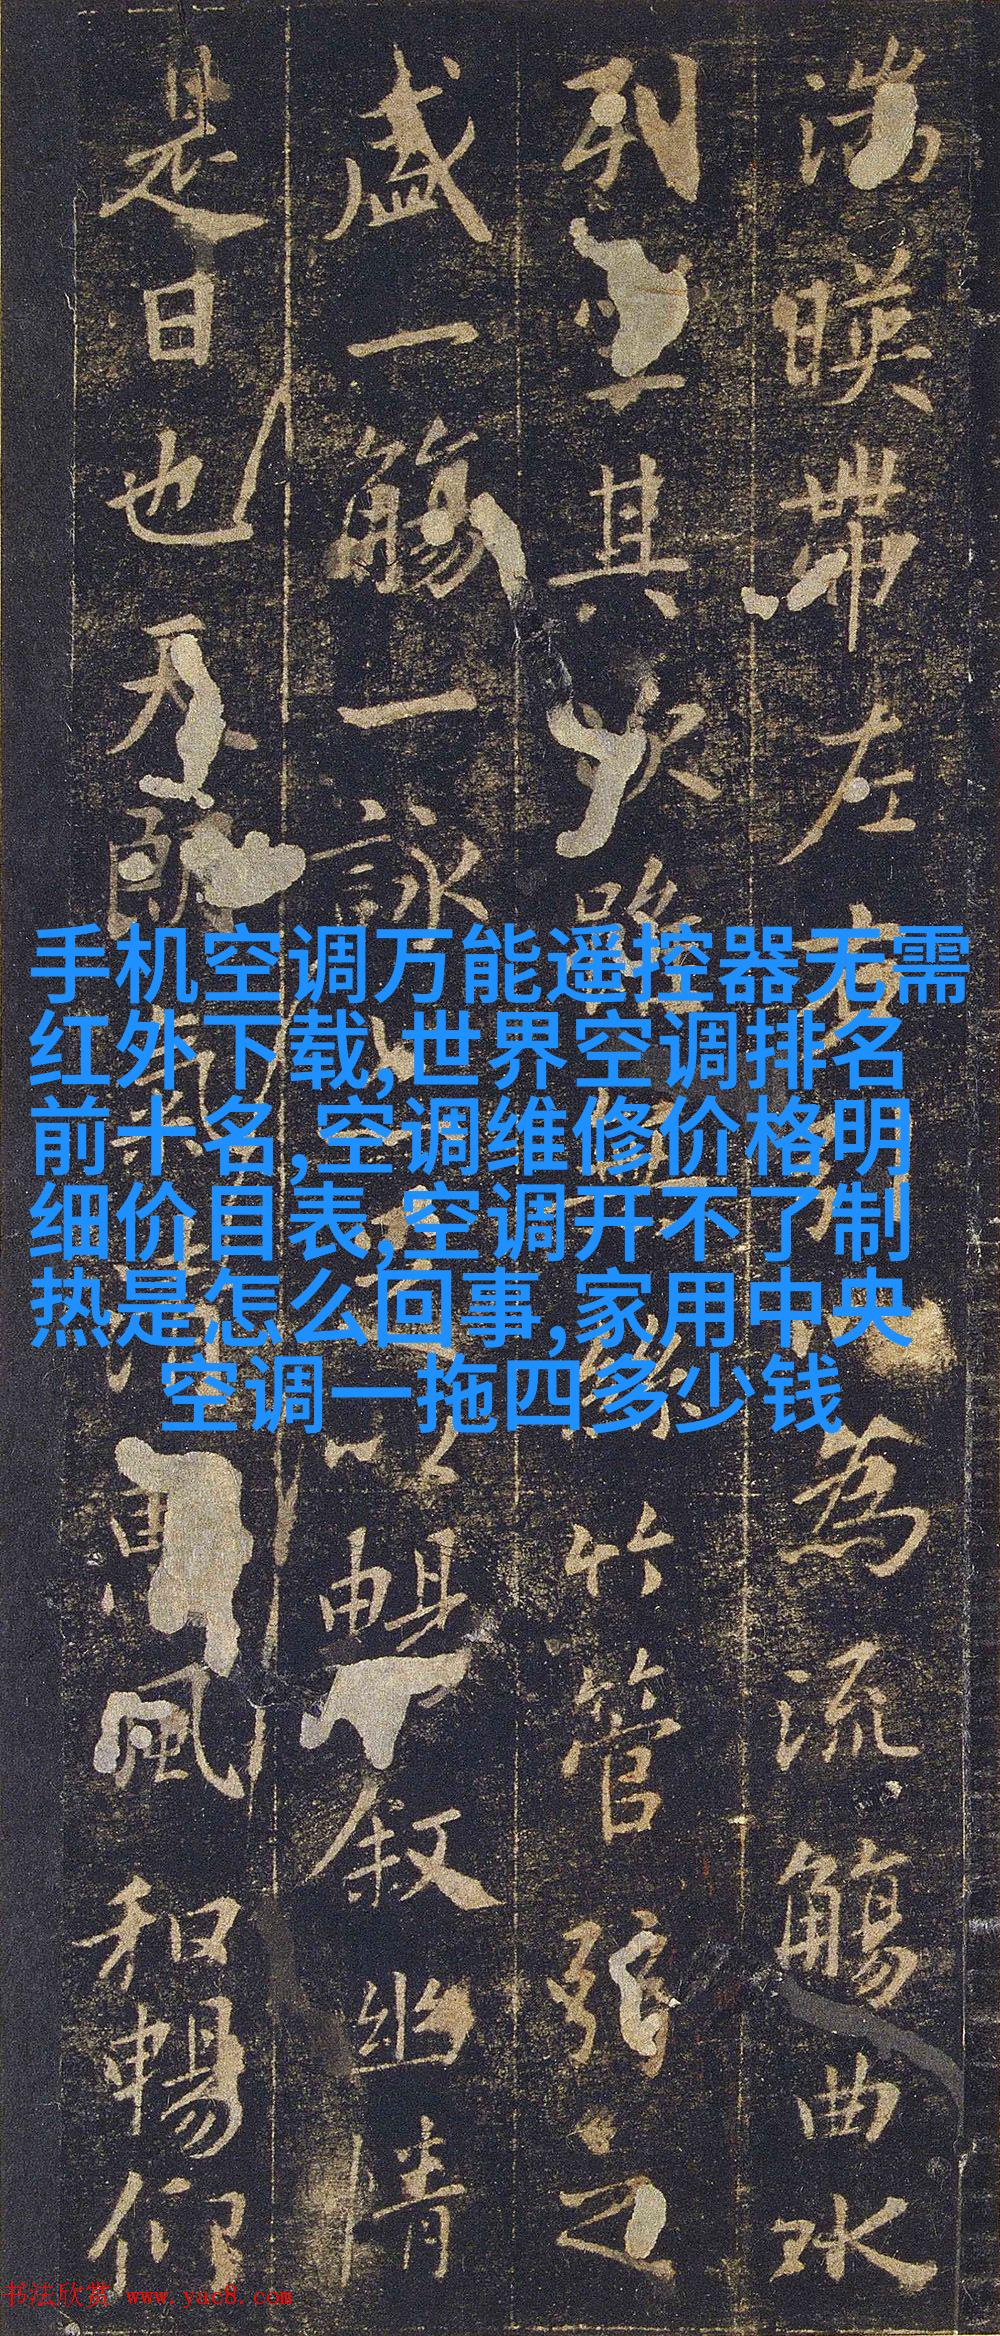 湍暎帶左右引以為流觴曲水
列坐其次雖無絲竹管弦之
盛一觴一詠亦足以暢敘幽情
是日也天朗氣清惠風和暢仰
手机空调万能遥控器无需
红外下载,世界空调排名
前十名,空调维修价格明
细价目表,空调开不了制
热是怎么回事,家用中央
空调一拖四多少钱
书法欣赏 www.yac8.com